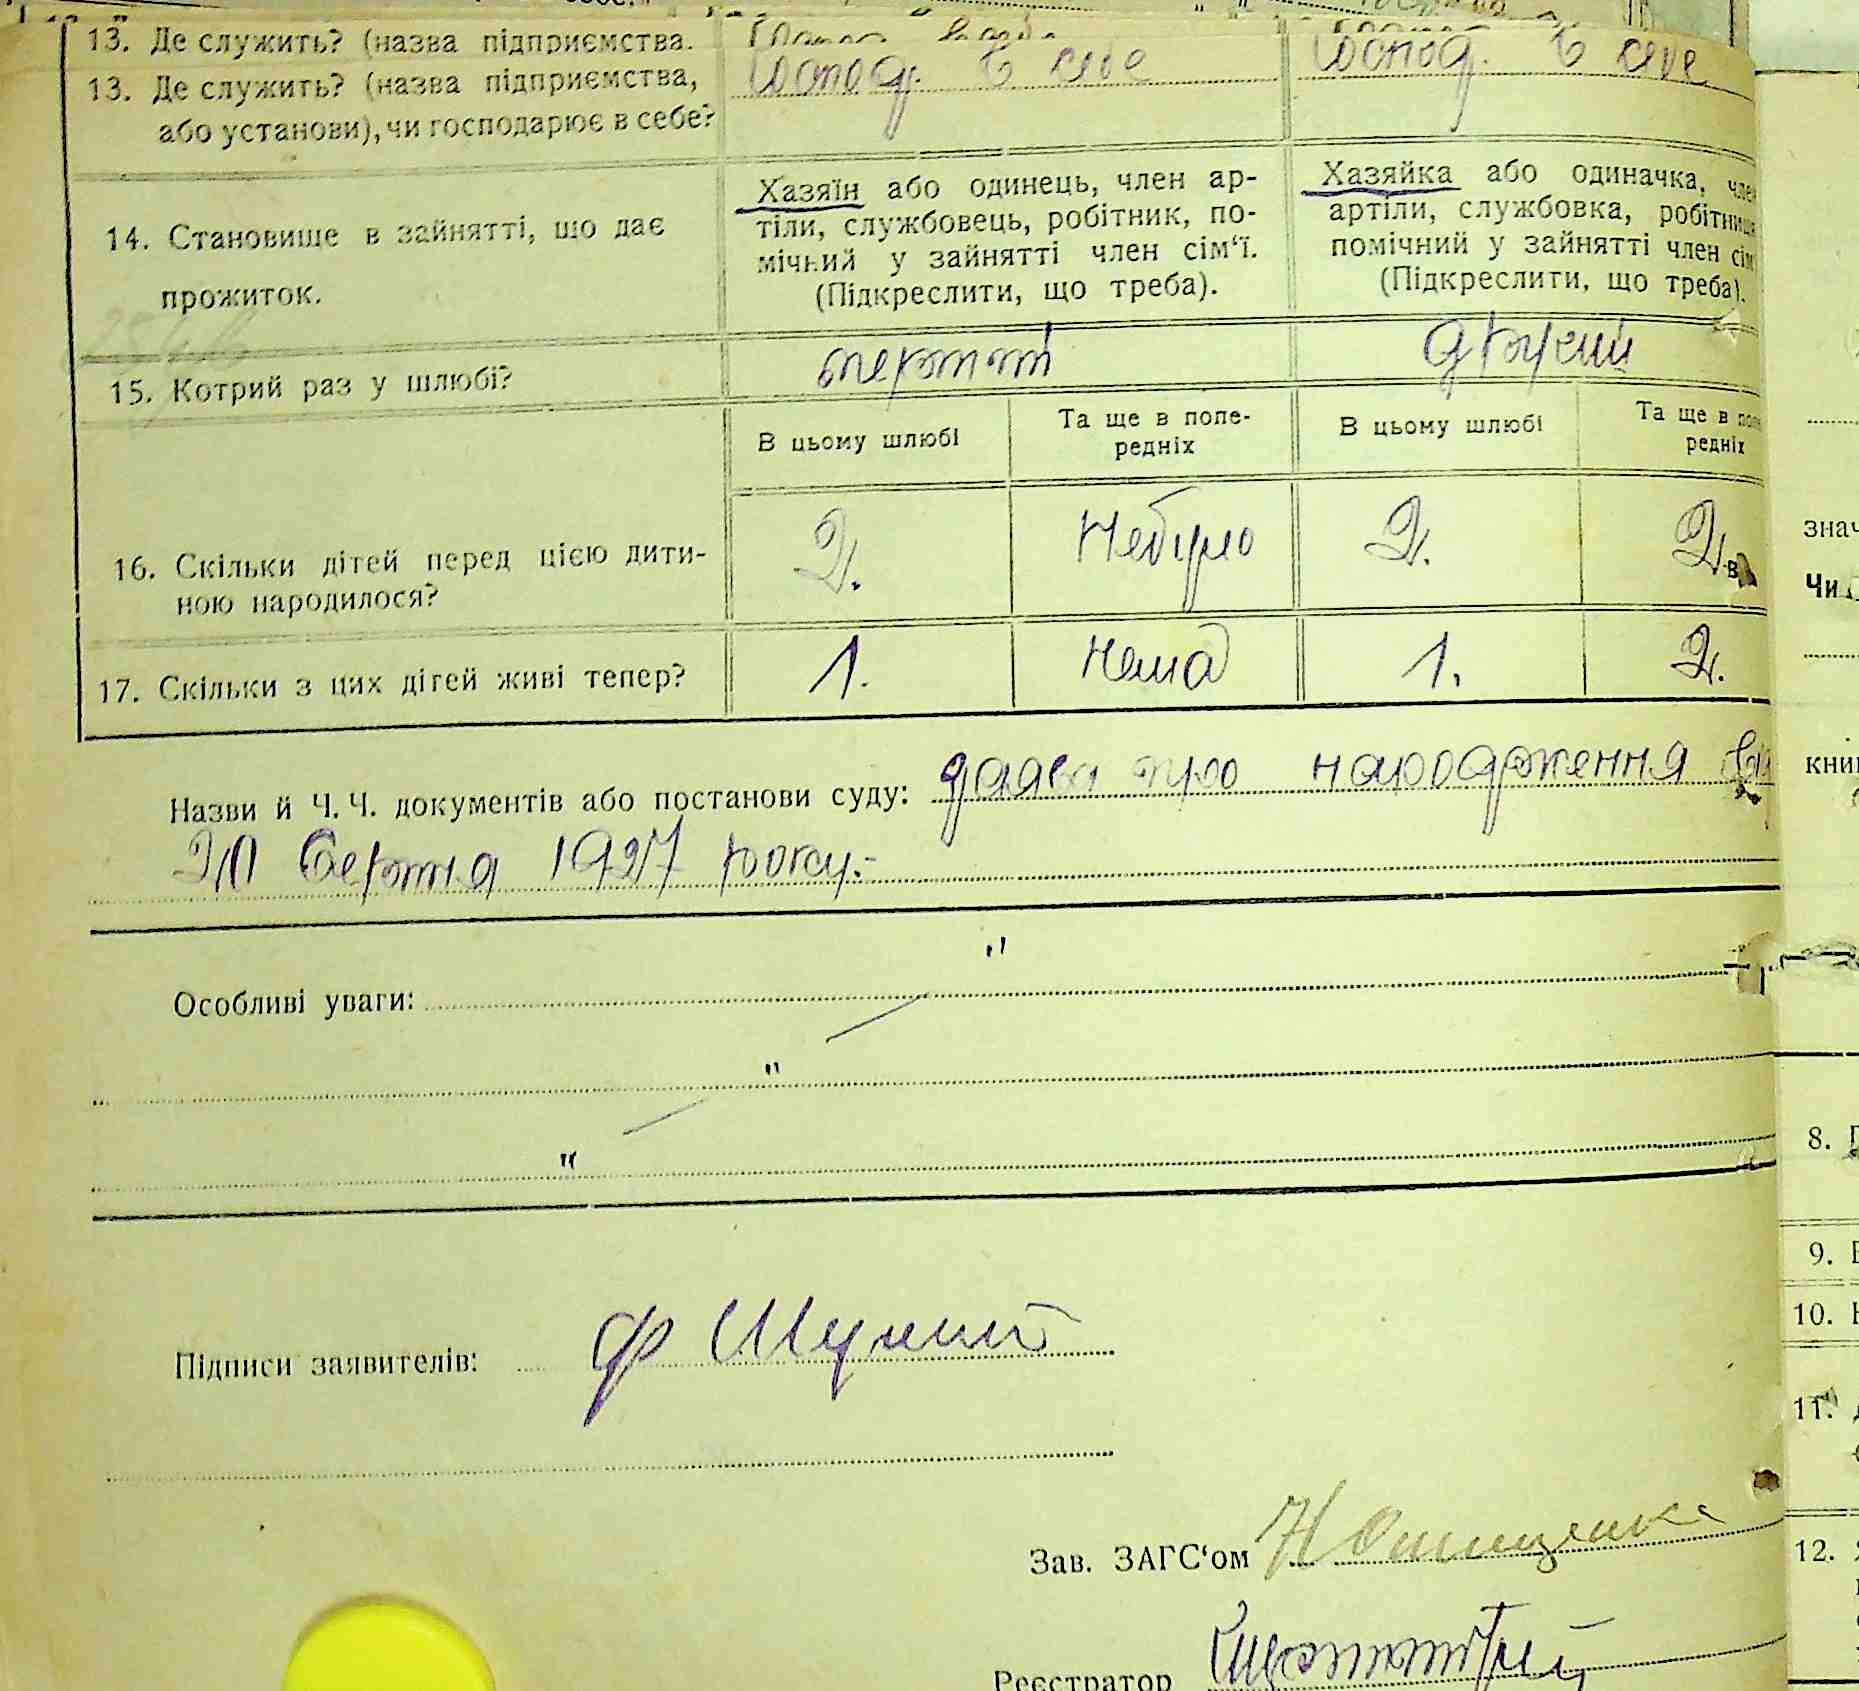 13. Де служить? (назва підприємства.
13. Де служить? (назва підприємства,
або установи), чи господарює в себе?
Господ. в себе
Господ. в себе
14. Становище в зайнятті, що дає
прожиток.
Хазяїн або одинець, член ар-
тіли, службовець, робітник, по-
мічний у зайнятті член сім‘ї.
(Підкреслити, що треба).
Хазяйка або одиначка, член
артіли, службовка, робітниця
помічний у зайнятті член сім
(Підкреслити, що треба).
15. Котрий раз у шлюбі?
другий
В цьому шлюбі
Та ще в попе-
редніх
В цьому шлюбі
Та ще в попе
редніх
16. Скільки дітей перед цією дити-
ною народилося?
2. Небуло 2. 2.
17. Скільки з цих дітей живі тепер?
1. Нема 1. 2.
Назви й Ч. Ч. документів або постанови суду: заява про народження від
20 Серпня 1927 року.-
Особливі уваги:
Підписи заявителів: Ф
Зав. ЗАГС‘ом
Реєстратор
знач
Чи
кни
8.
9.
10.
11.
12.